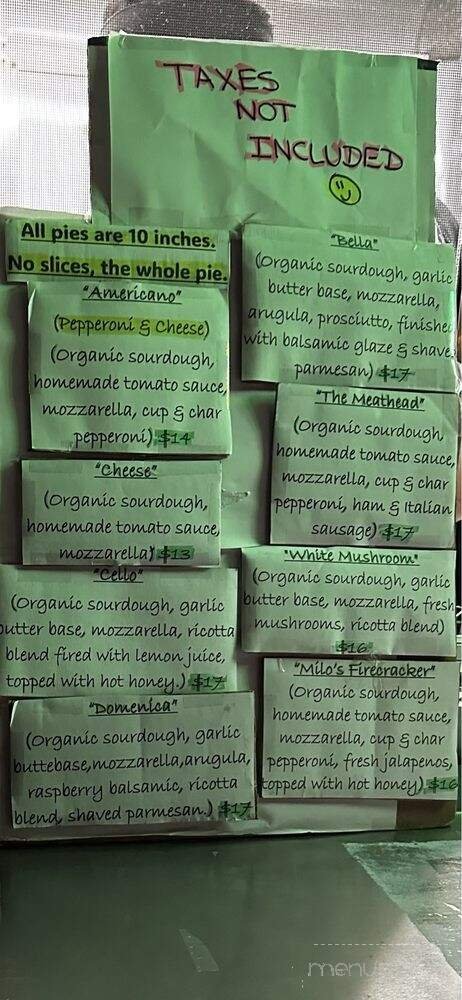 TAXES
NOT
INCLUDED
All pies are 10 inches.
No slices, the whole pie.
"Americano"
(Pepperoni & Cheese)
(Organic sourdough,
homemade tomato sauce,
mozzarella, cup & char
pepperoni) $14
"Cheese"
(Organic sourdough,
homemade tomato sauce,
mozzarella) $13
"Cello"
(Organic sourdough, garlic
butter base, mozzarella, ricotta
blend fired with lemon juice,
topped with hot honey.) $17
"Domenica"
(Organic sourdough, garlic
buttebase,mozzarella,arugula,
raspberry balsamic, ricotta
blend, shaved parmesan.) $17
"Bella"
(Organic sourdough, garlic
butter base, mozzarella,
arugula, prosciutto, finished
with balsamic glaze & shave
parmesan) $17
"The Meathead"
(Organic sourdough,
homemade tomato sauce,
mozzarella, cup & char
pepperoni, ham & Italian
sausage) $17
"White Mushroom"
(Organic sourdough, garlic
butter base, mozzarella, fresh
mushrooms, ricotta blend)
$16
"Milo's Firecracker"
(Organic sourdough,
homemade tomato sauce,
mozzarella, cup & char
pepperoni, fresh jalapenos,
topped with hot honey) $16